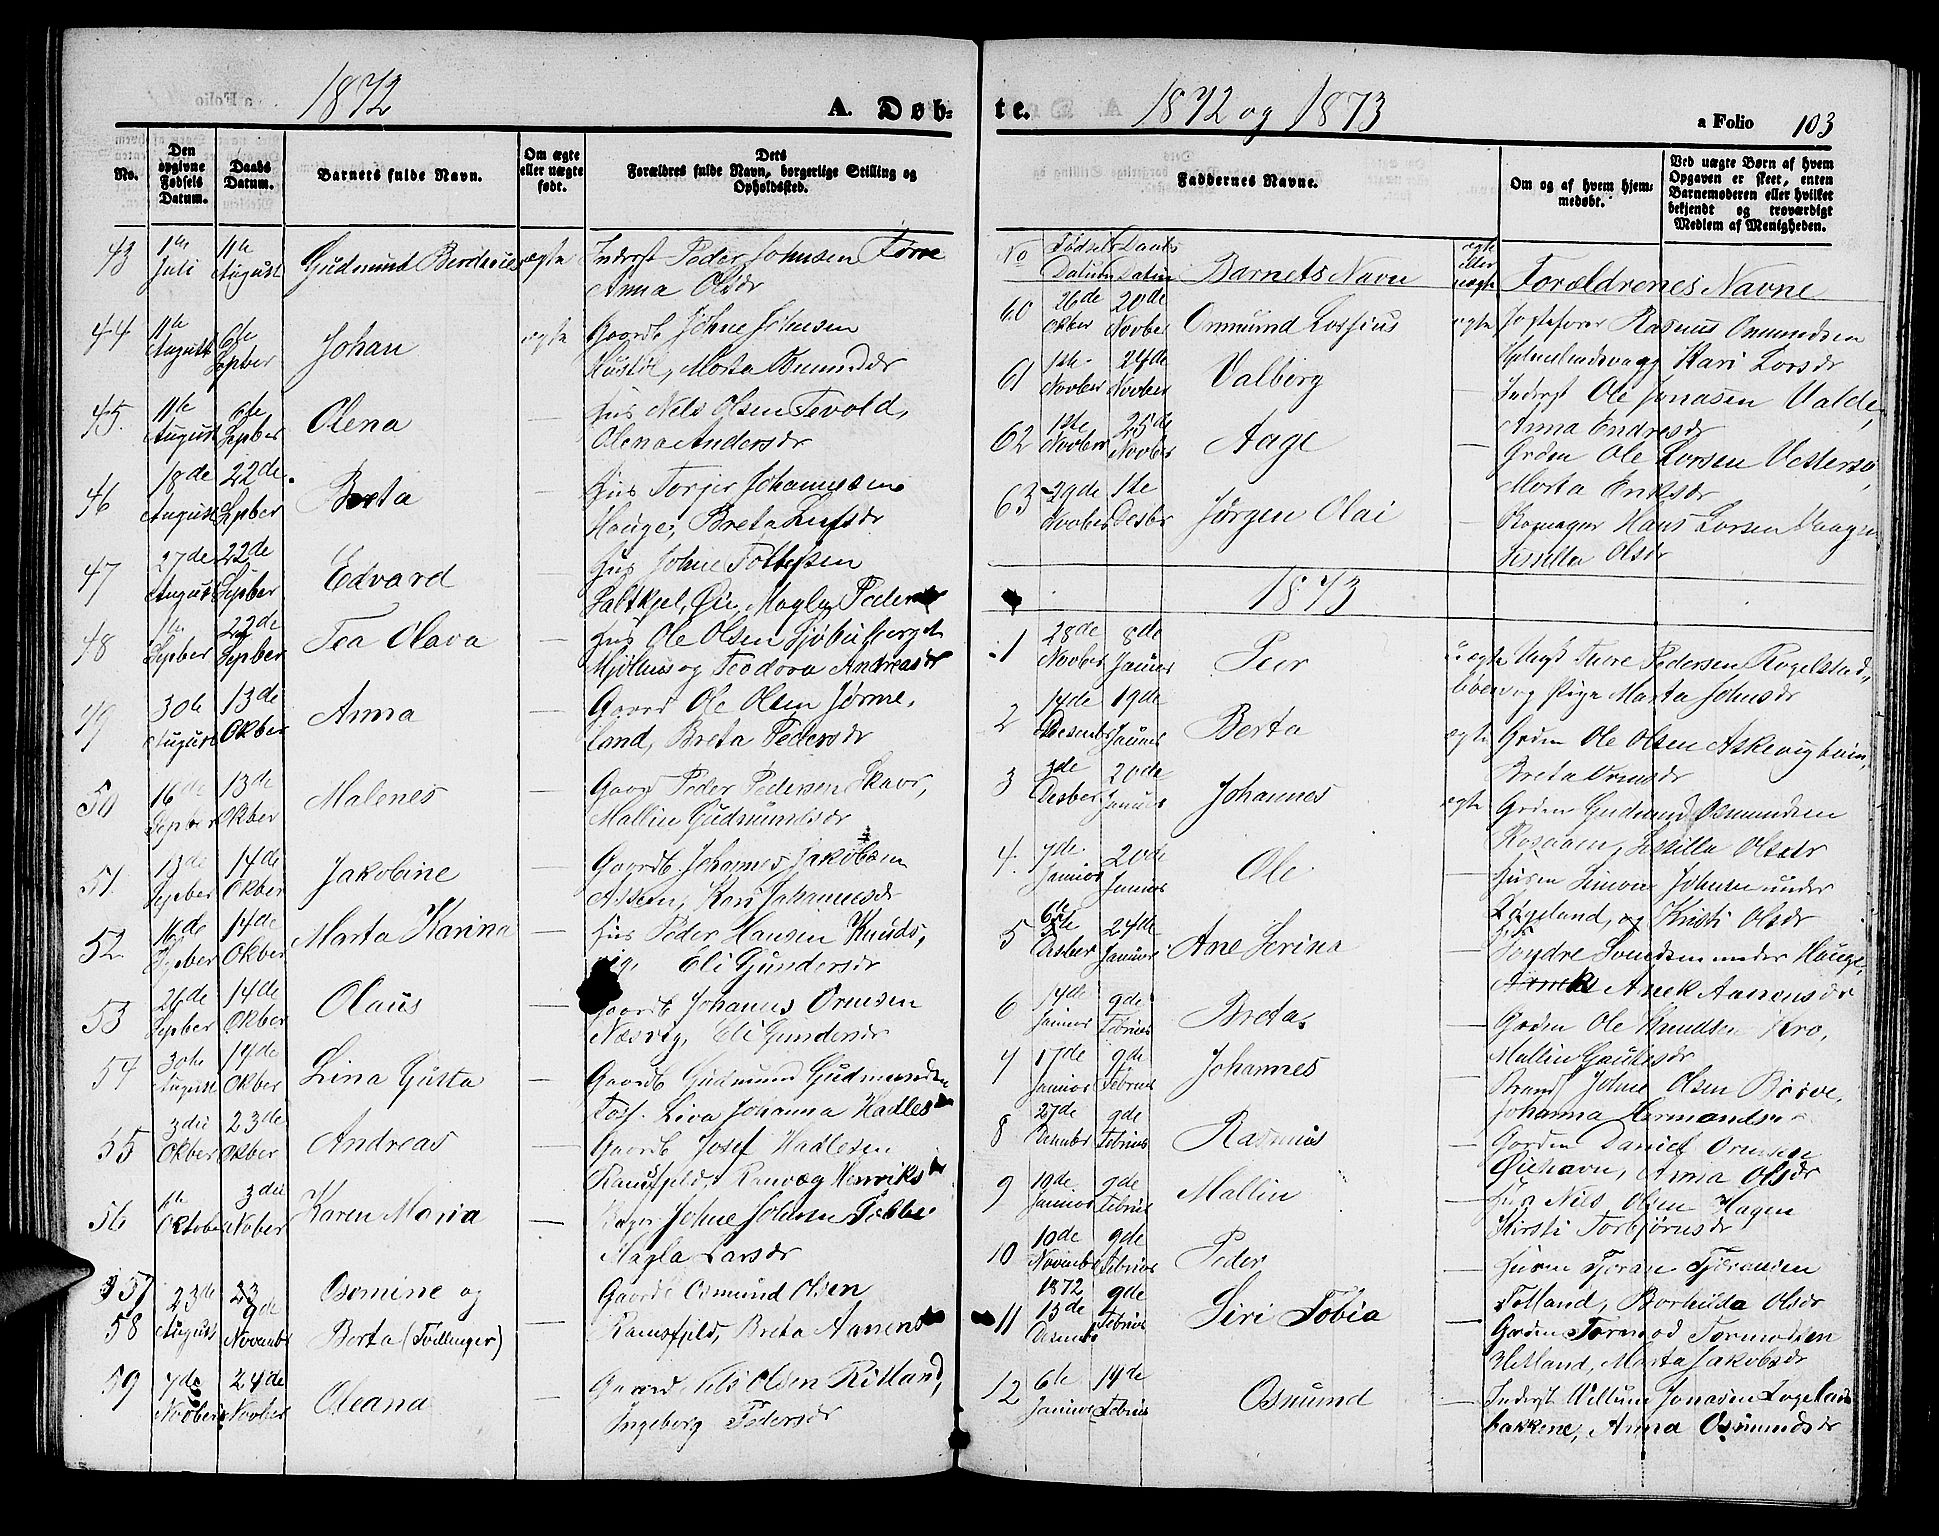 1872
A. Døb-
No.
Den opgivne Fødsels Datum.
Daabs Datum.
Barnets fulde Navn.
Om ægte eller uægte født.
Dets Forældres fulde Navn, borgerlige Stilling og Opholdssted.
43 1ste Juli 11te August Gudmund Berdinius ægte Inderst Peder Johnsen Førre
Anna Olsdr
44 11te August 6te Sepber Johan ægte Gaardb Johne Johnsen
Hustøl, Marta Osmundsdr
45. 11te August 6te Sepber Olena — Hus Nels Olsen Tevold,
Olena Andersdr
46 18de August 22de Sepber Berta — Hus Torjer Johannesen
Hauge, Breta Leifsdr
47 27de August 22de Sepber Edvard — Hus Johne Tollefsen
Saltkjel, Øie, Magla Pedersdr
48 1te Sepber 22de Sepber Tea Olava — Hus Ole Olsen Sjøbuberget
Mjølhus og Teodora Andreasdr
49 30te August 13de Okber Anna — Gaard Ole Olsen Jørme,
land, Breta Pedersdr
50 16de Sepber 13de Okber Malenes — Gaard Peder Pedersen Skaar,
Mallin Gudmundsdr
51. 13de Sepber 14de Okber Jakobine — Gaardb. Johannes Jakobsen
Assen, Kari Johannesdr
52. 16de Sepber 14de Okber Marta Karina — Hus Peder Hansen Knuds,
Eli Gundersdr
53 26de Sepber 14de Okber Olaus — Gaardb Johannes Ormsen
Næsvig, Eli Gundersdr
54 30te August 14de Okber Lina Gusta — Gaardb Gudmund Gudmundsen
Foss. Liva Johanna Hadlesdr
55 3die Okber 23de Okber Andreas — Gaardb Josef Hadlesen
Ramsfjeld, Ranvæg Henriksdr
56 1te Oktober 3die Nober Karen Maria — Johne Johnsen
Magla Larsdr
57 23de August 23 9de Novembr Osmine og — Gaardb Osmund Olsen
58 Berta (Tvillinger) Ramsfjeld, Breta Aanensdr
59 7de Novber 24de Novber Oleana — Gaard Nels Olsen Ritland,
Ingeborg Pedersdr
te.
1872 og 1873
a Folio 103
Faddernes Navne.
Om og af hvem hjemmedøbt.
Ved uægte Børn af hvem Opgaven er skeet, enten Barnemoderen eller hvilket bekjendt og troværdigt Medlem af Menigheden.
No Fødsels Datum Daabs Datum Barnets Navn ægte eller uægte Forældrenes Navne
60 26de Okber 20de Novber Osmund Lossius ægte Rasmus Osmundsen
Kari Larsdr
61 1ste Novber 24de Novber Valborg — Inderst Ole Jonasen Valde,
Anna Endresdr
62 1ste Novber 25de Novber Aage — Grden Ole Larsen Vestersø,
Marta Eriksdr
63 29de Novber 1ste Desbr Jørgen Olai — Hans Larsen Vaagen
Sissilla Olsdr
1873
1 28de Novber 8de Januar Peer uægte Ungk Ture Pedersen Rogelstad,
og Pige Marta Johnsdr
2 14de Desembr 19de Januar Berta ægte Grden Ole Olsen Askevighein,
Breta Ormsdr
3 3de Desber 20de Januar Johannes ægte Grden Gudmund Osmundsen
Rosaaen, Sissilla Olsdr
4. 7de Januar 20de Januar Ole — Husm Simon Johnsen under
og Kristi Olsdr
5 6te Desber 24de Januar Ane Serina — Sondre Svendsen under Hauge,
Anek Aanensdr
6 14de Januar 9de Febriar Breta. — Grden Ole Knudsen Kro,
Mallin Gautesdr
7 17de Januar 9de Febriar Johannes — Johne Olsen Børve,
Johanna Hermandsdr
8 27de Desembr 9de Febriar Rasmus — Garden Daniel Ormsen
Øiehavn, Anna Olsdr
9 19de Januar 9de Febriar Mallin — Hus Nels Olsen Hagen
Kirsti Torbjørnsdr
10 10de Novembr 1872 9de Febriar Peder — Husm Tjøran Tjøransen
Totland, Borhilda Olsdr
11 13de Desembr 9de Febriar Siri Tobia — Garden Tormod Tormodsen
Hetland, Marta Jakobsdr
12 6te Januar 14de Febriar Osmund — Inderst Willum Jonasen Fogelands
bakkene, Anna Osmundsdr